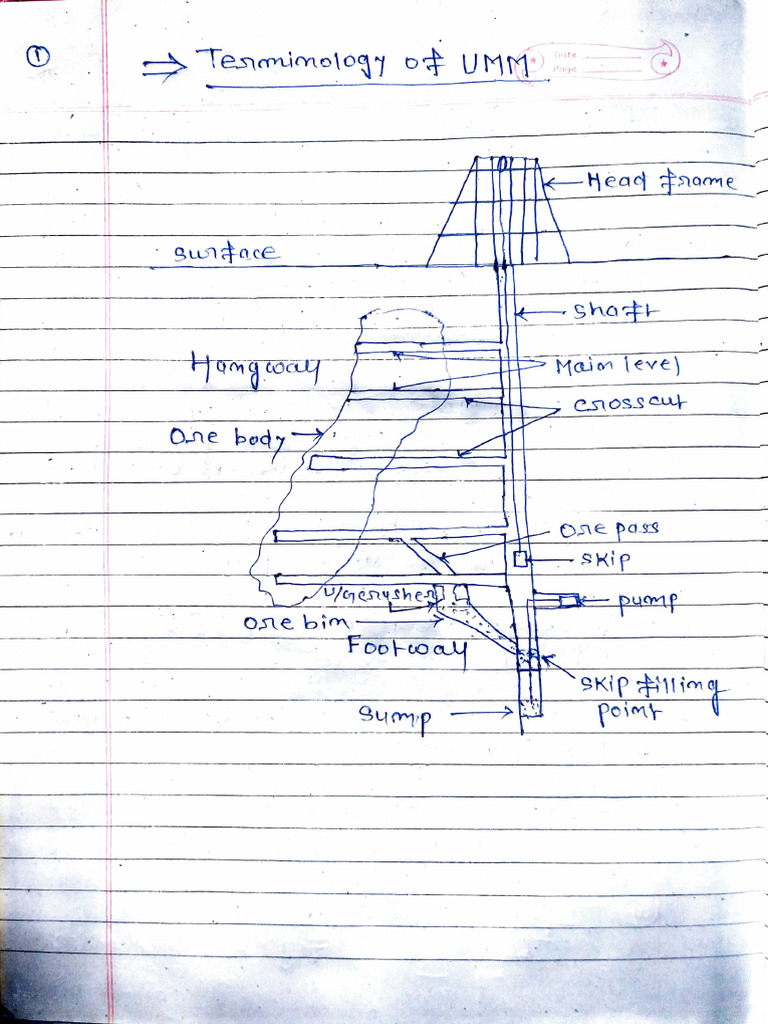 1
⇒ Terminology of UMM
Date
Page
Head frame
Surface
Shaft
Hangway
Main level
Crosscut
Ore body
Ore pass
Skip
U/G crusher
pump
Ore bin
Footway
Skip filling
point
Sump